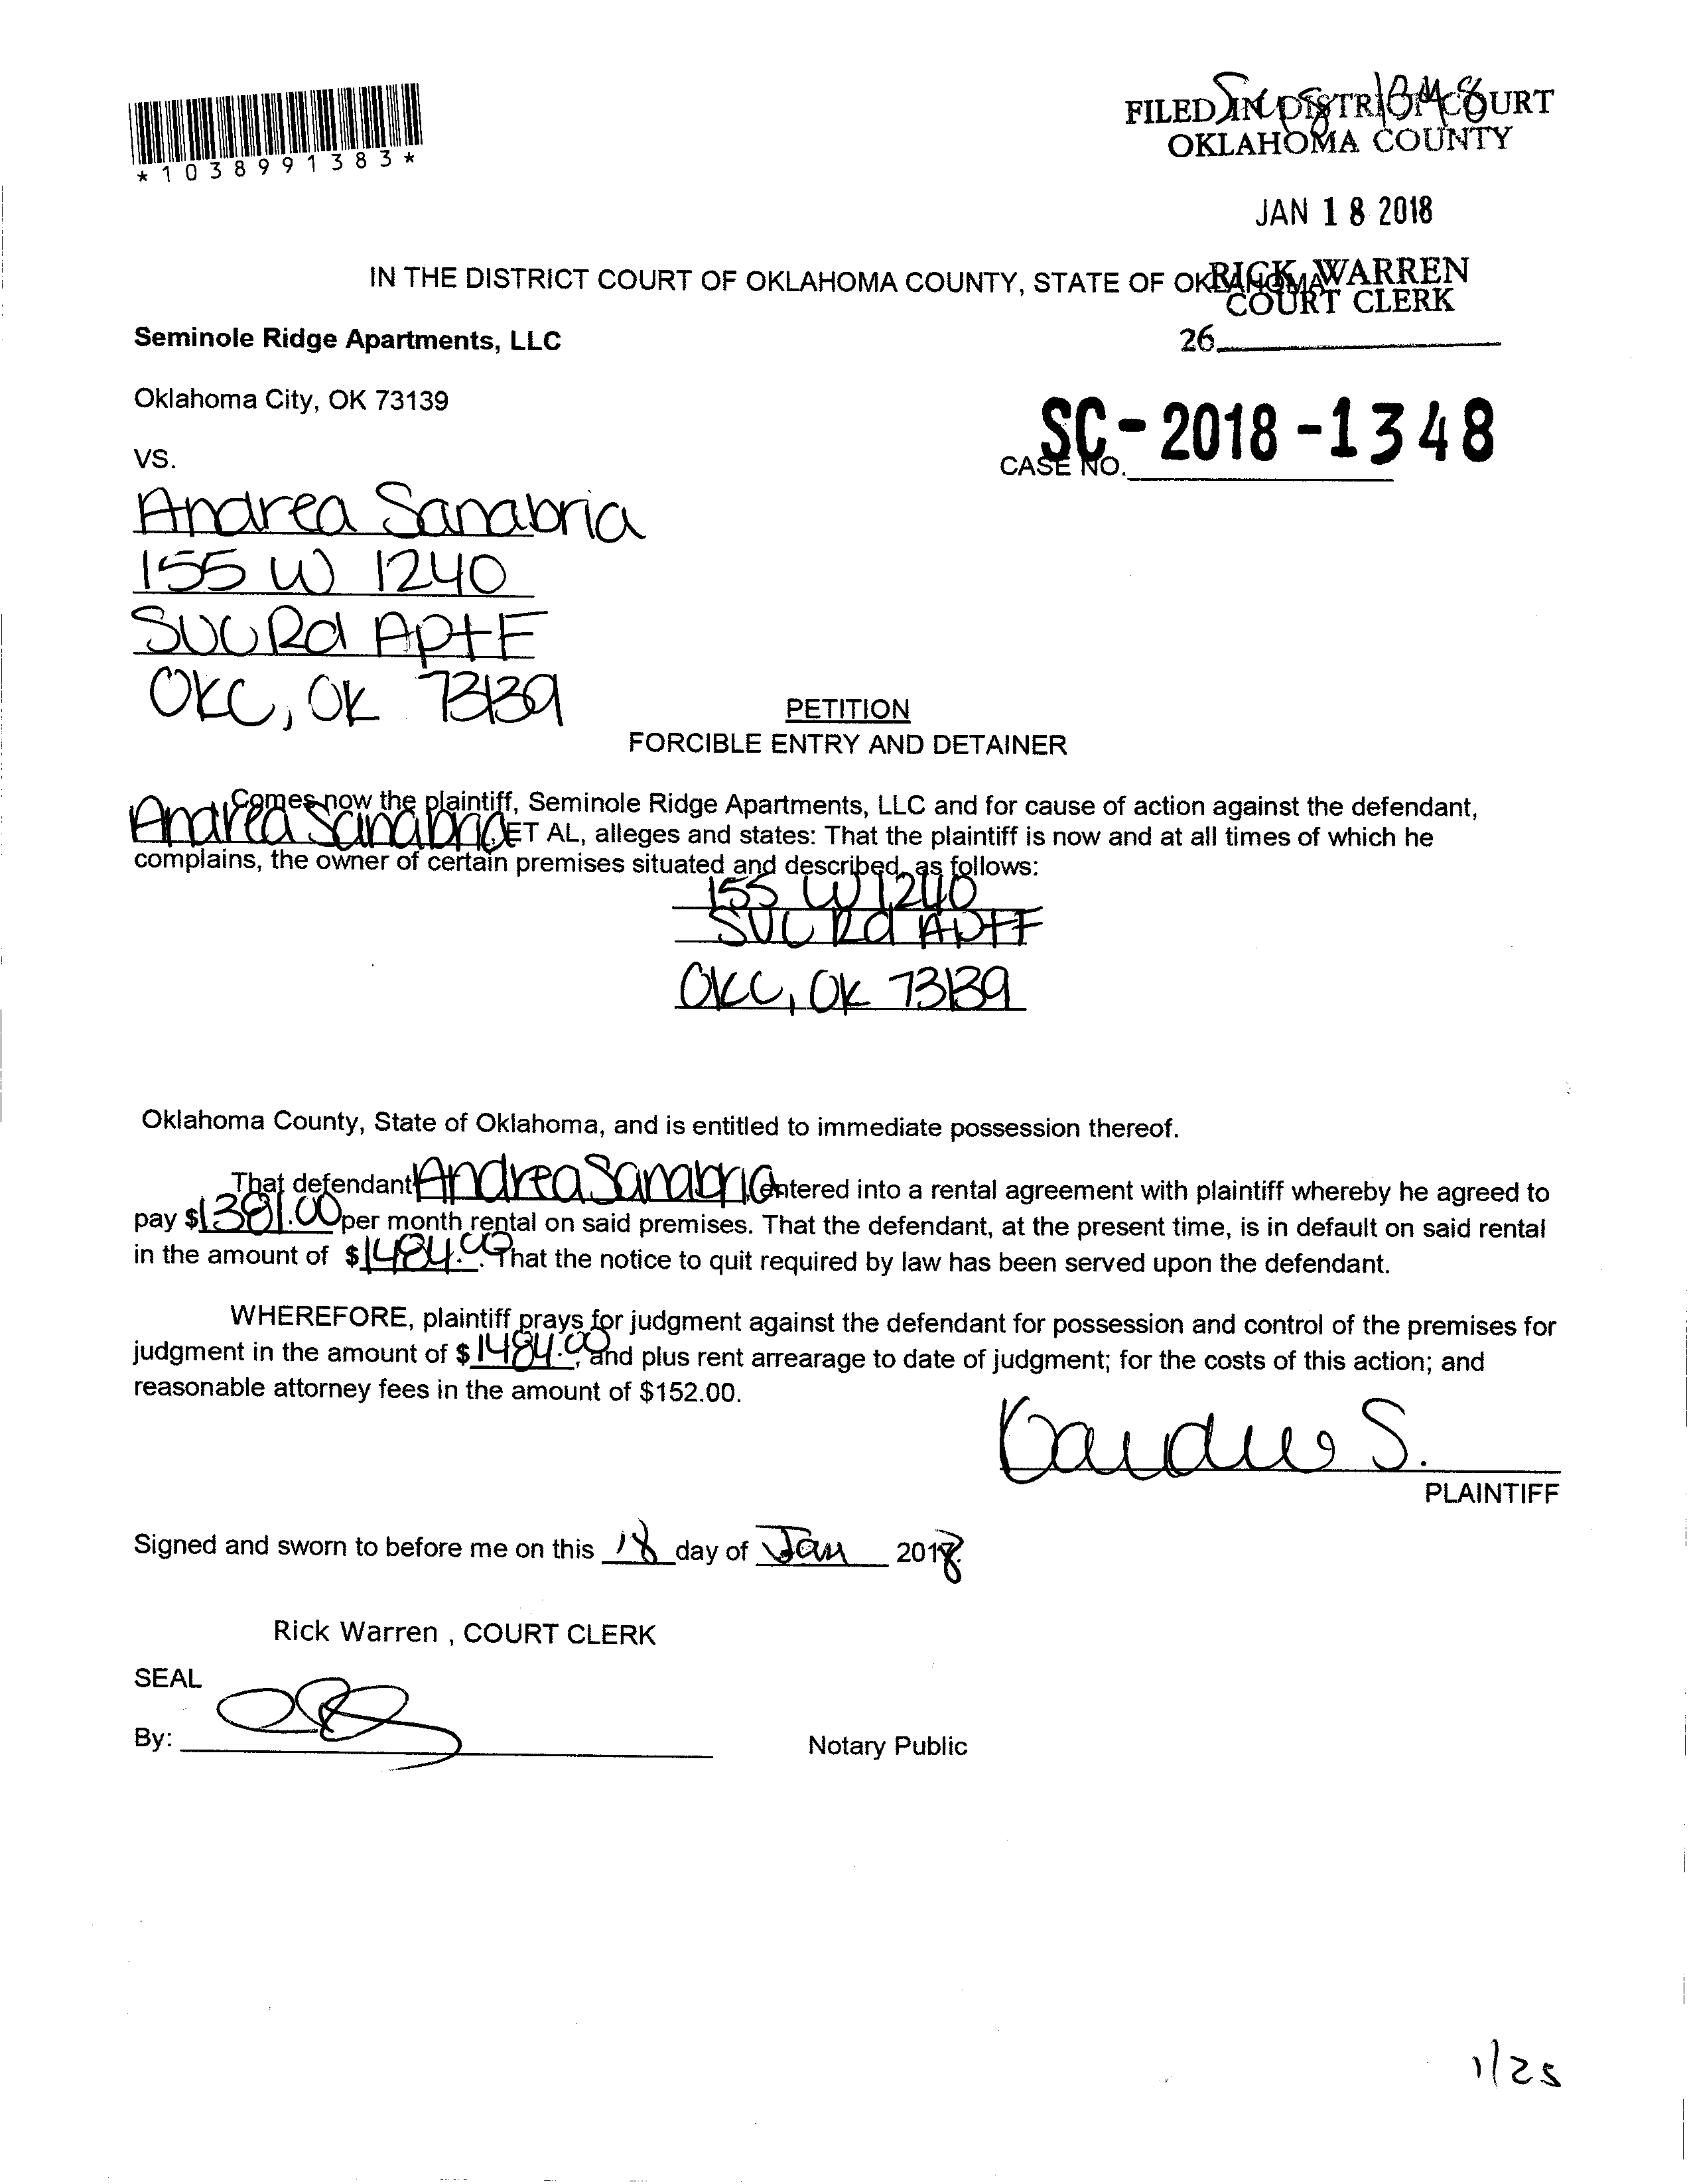 *1038991383*
FILED IN DISTRICT COURT
OKLAHOMA COUNTY
JAN 18 2018
IN THE DISTRICT COURT OF OKLAHOMA COUNTY, STATE OF OKLAHOMA
RICK WARREN
COURT CLERK
Seminole Ridge Apartments, LLC
26
Oklahoma City, OK 73139
SC-2018-1348
VS.
CASE NO.
Andrea Sanabria
155 W 1240
SVC Rd Apt F
OKC, OK 73139
PETITION
FORCIBLE ENTRY AND DETAINER
Comes now the plaintiff, Seminole Ridge Apartments, LLC and for cause of action against the defendant,
Andrea Sanabria ET AL, alleges and states: That the plaintiff is now and at all times of which he
complains, the owner of certain premises situated and described, as follows:
155 W 1240
SVC Rd Apt F
OKC, OK 73139
Oklahoma County, State of Oklahoma, and is entitled to immediate possession thereof.
That defendant Andrea Sanabria, entered into a rental agreement with plaintiff whereby he agreed to
pay $1381.00 per month rental on said premises. That the defendant, at the present time, is in default on said rental
in the amount of $1484.00. That the notice to quit required by law has been served upon the defendant.
WHEREFORE, plaintiff prays for judgment against the defendant for possession and control of the premises for
judgment in the amount of $1484.00, and plus rent arrearage to date of judgment; for the costs of this action; and
reasonable attorney fees in the amount of $152.00.
S.
PLAINTIFF
Signed and sworn to before me on this 18 day of Jan 2018
Rick Warren , COURT CLERK
SEAL
By:
Notary Public
1/25